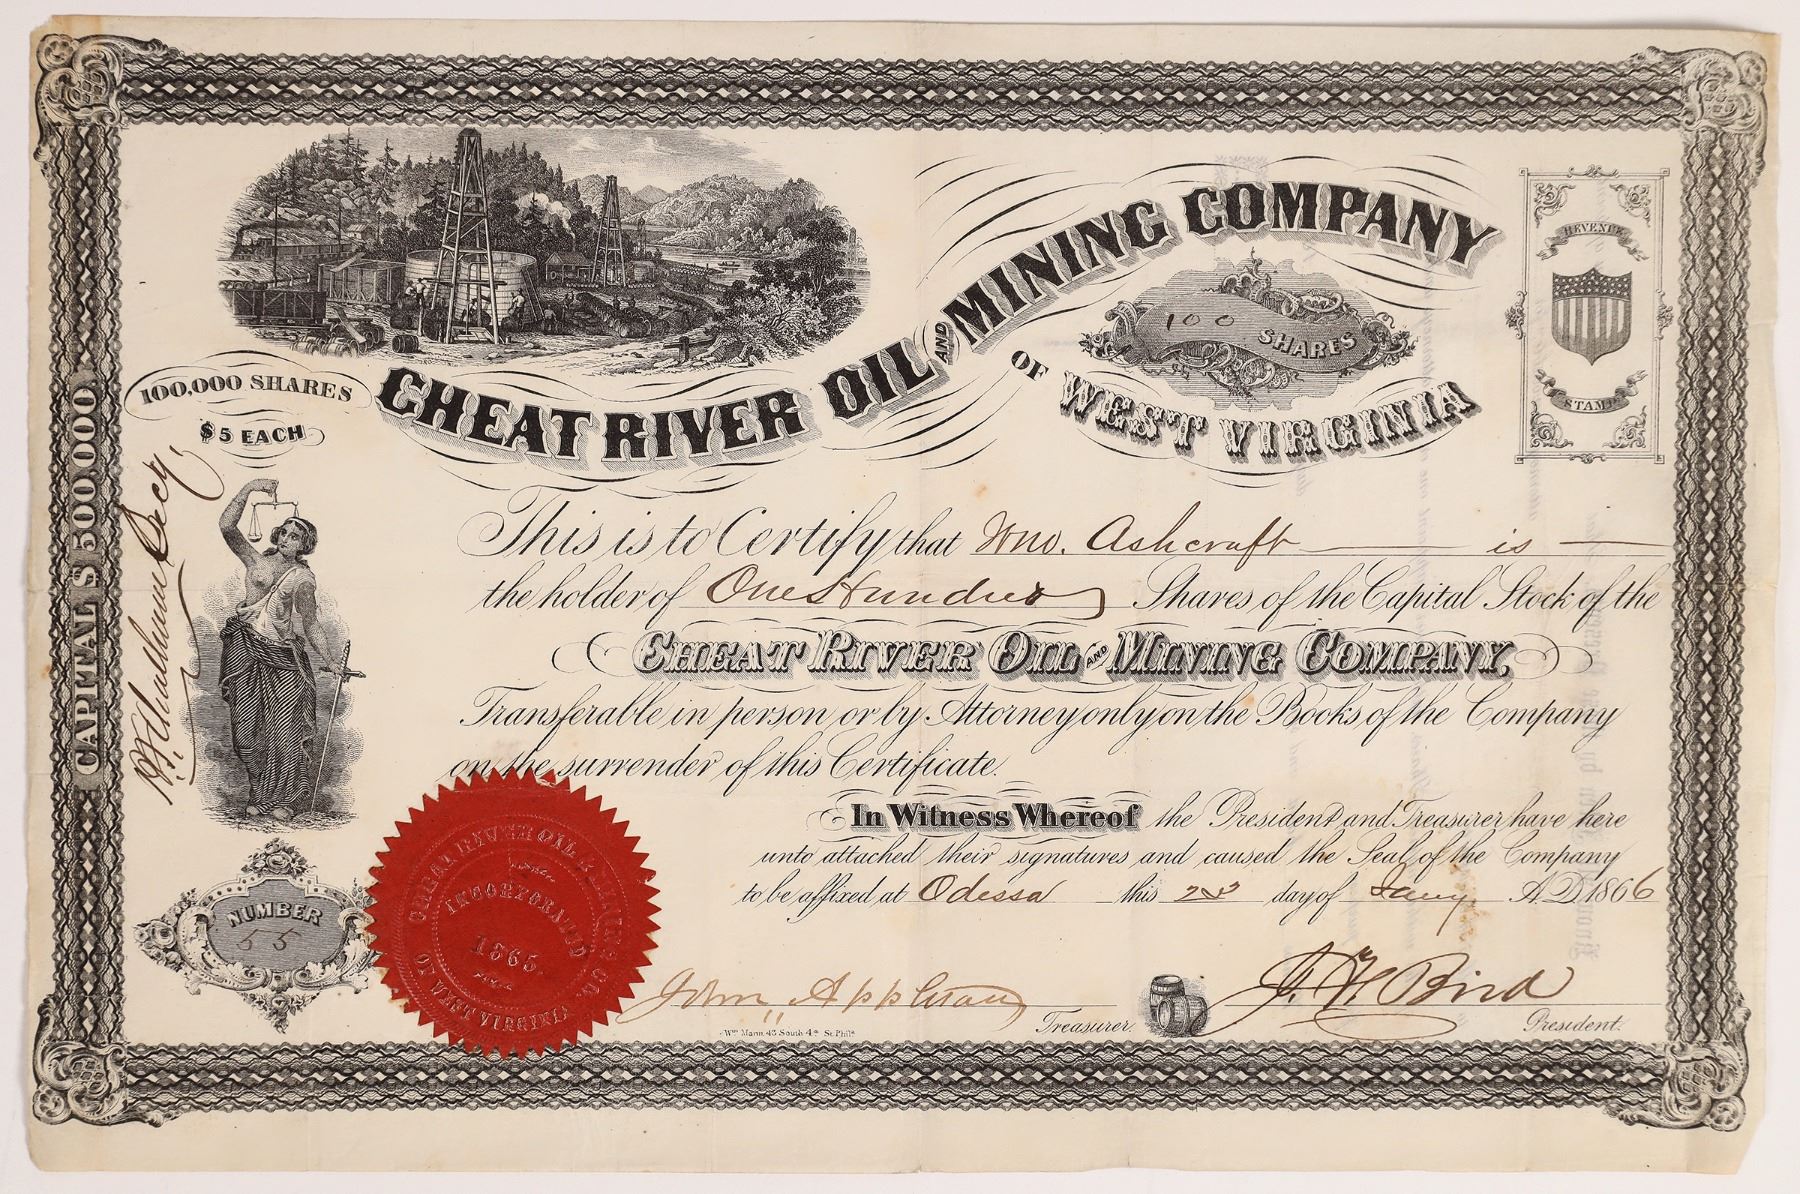 CAPITAL $ 500,000
100,000 SHARES
$5 EACH
CHEAT RIVER OIL AND MINING COMPANY
OF
WEST VIRGINIA
100 SHARES
REVENUE
STAMP
Secy.
This is to Certify that Wm. Ashcraft is
the holder of One Hundred Shares of the Capital Stock of the
CHEAT RIVER OIL AND MINING COMPANY,
Transferable in person or by Attorney only on the Books of the Company
on the surrender of this Certificate.
In Witness Whereof the President and Treasurer have here
unto attached their signatures and caused the Seal of the Company
to be affixed at Odessa this 2nd day of Jany. A.D. 1866
NUMBER
55
CHEAT RIVER OIL & MINING CO.
OF WEST VIRGINIA
INCORPORATED
1865.
John Appleton
Treasurer.
J. H. Bird
President.
Wm Mann, 43 South 4th St. Phila